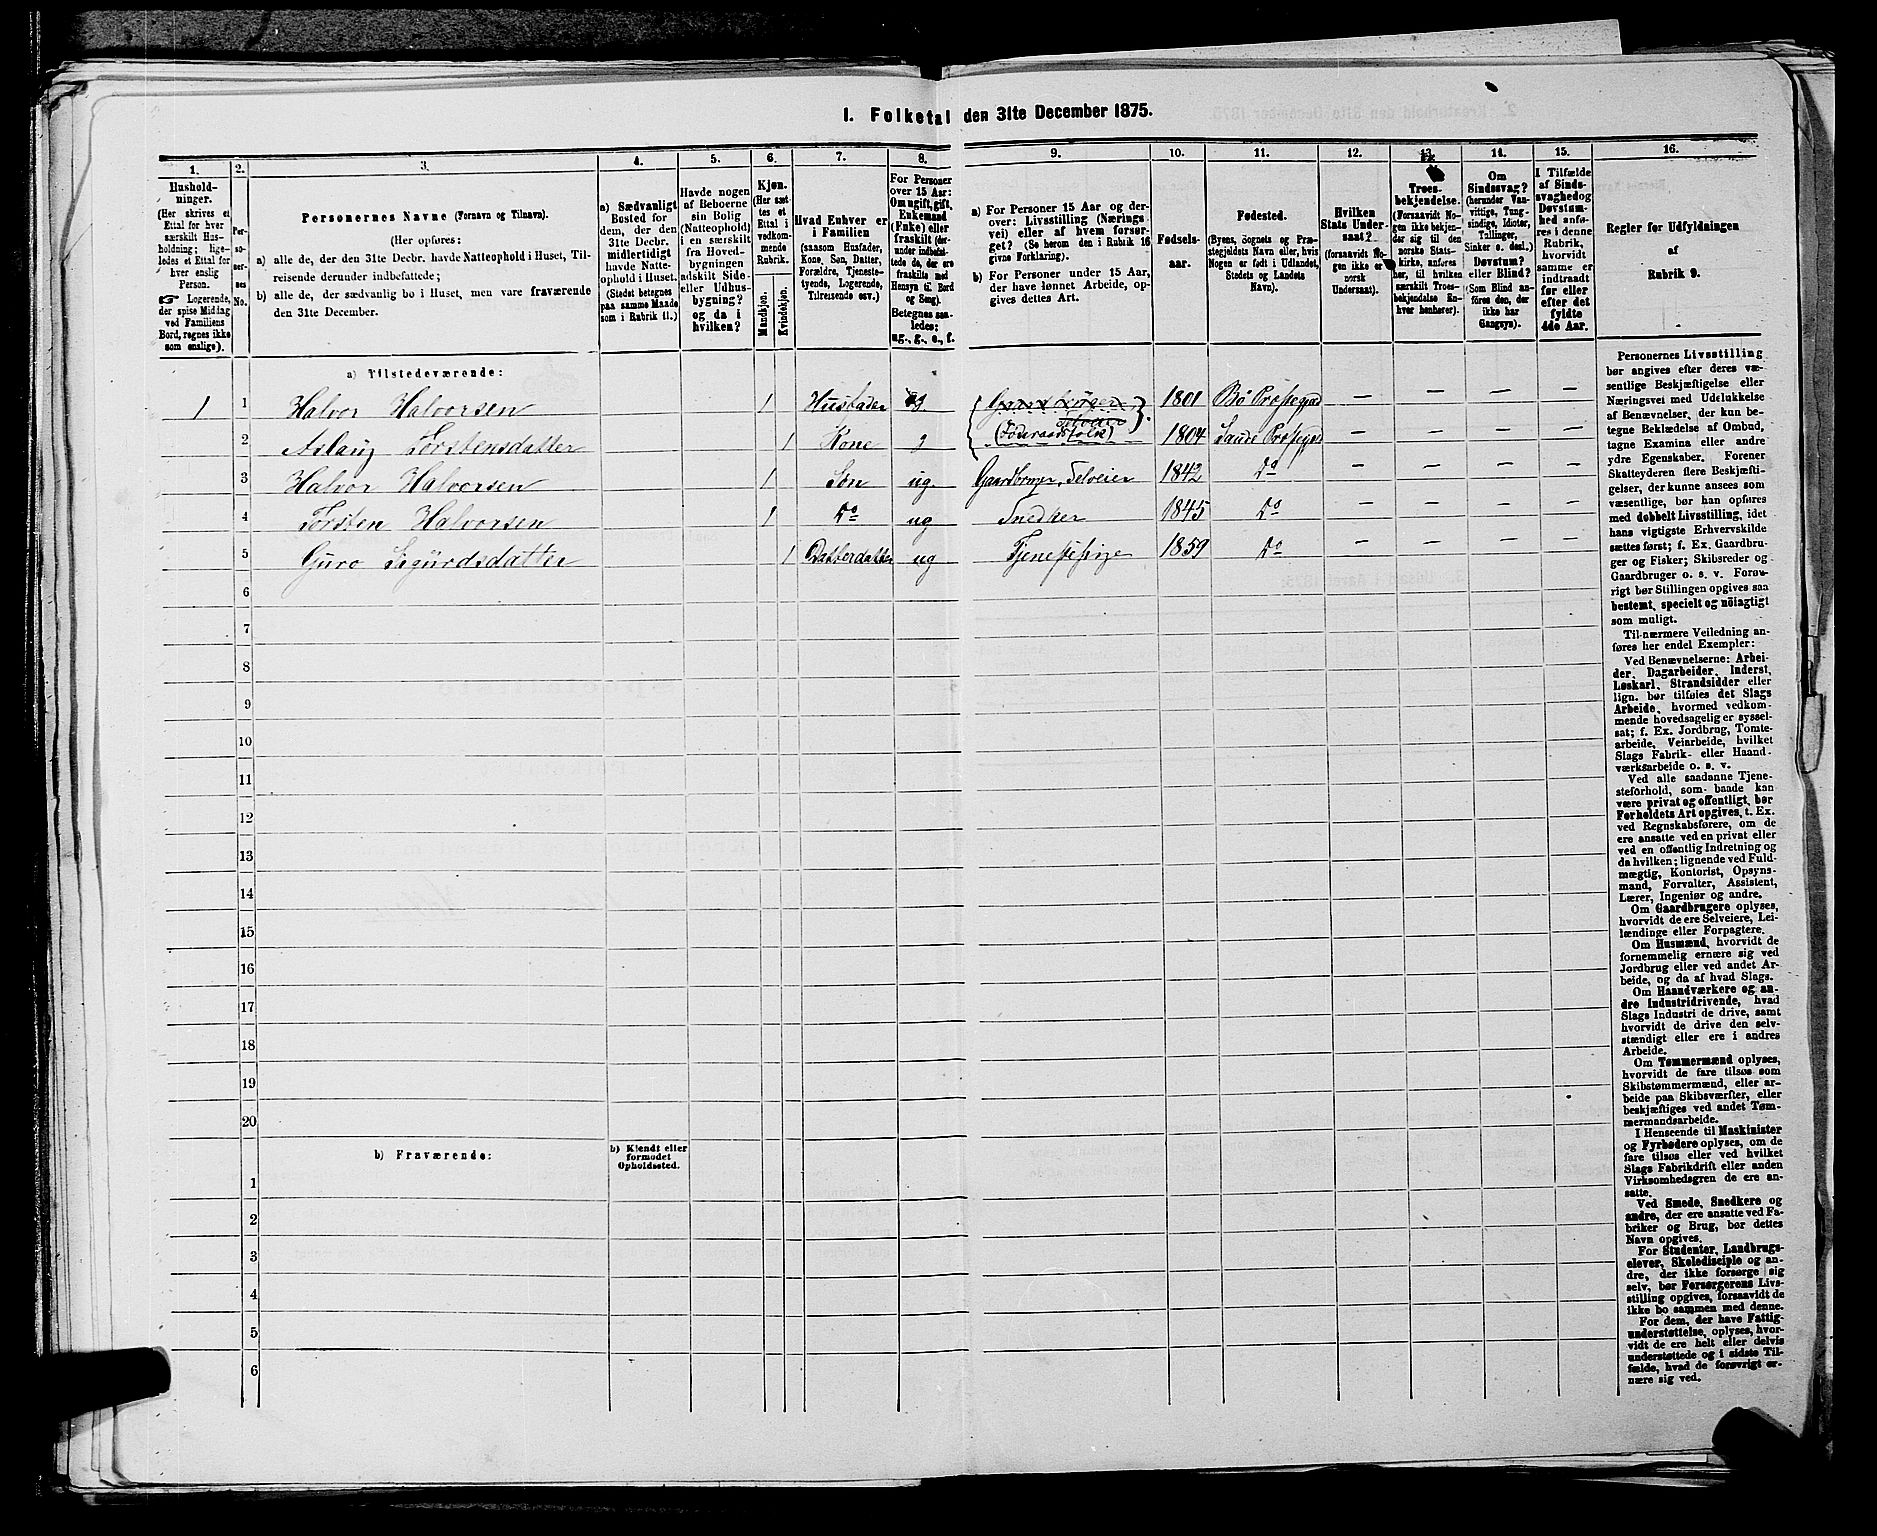 1. Folketal den 31te December 1875.
1. 2. 3. 4. 5. 6. 7. 8. 9. 10. 11. 12. 13. 14. 15. 16.
Hushold-
ninger.
(Her skrives et
Ettal for hver
særskilt Hus-
holdning; lige-
ledes et Ettal for
hver enslig
Person.
☞ Logerende,
der spise Middag
ved Familiens
Bord, regnes ikke
som enslige).
Per-
so-
ner-
nes
No.
Personernes Navne (Fornavn og Tilnavn).
(Her opføres:
a) alle de, der den 31te Decbr. havde Natteophold i Huset, Til-
reisende derunder indbefattede;
b) alle de, der sædvanlig bo i Huset, men vare fraværende
den 31te December.
a) Sædvanligt
Bosted for
dem, der den
31te Decbr.
midlertidigt
havde Natte-
ophold i Huset.
(Stedet betegnes
paa samme Maade
som i Rubrik 11.)
Havde nogen
af Beboerne
sin Bolig
(Natteophold)
i en særskilt
fra Hoved-
bygningen
adskilt Side-
eller Udhus-
bygning?
og da i
hvilken?
Kjøn.
(Her sæt-
tes et
Ettal i
vedkom-
mende
Rubrik.
Mandkjøn.
Kvindekjøn.
Hvad Enhver er
i Familien
(saasom Husfader,
Kone, Søn, Datter,
Forældre, Tjeneste-
tyende, Logerende,
Tilreisende osv.)
For Personer
over 15 Aar:
Om ugift, gift,
Enkemand
(Enke) eller
fraskilt (der-
under indbefat-
tede de, der ere
fraskilte med
Hensyn til Bord
og Seng).
Betegnes saa-
ledes:
ug., g., e., f.
a) For Personer 15 Aar og der-
over: Livsstilling (Nærings-
vei) eller af hvem forsør-
get? (Se herom den i Rubrik 16
givne Forklaring).
b) For Personer under 15 Aar,
der have lønnet Arbeide, op-
gives dettes Art.
Fødsels-
aar.
Fødested.
(Byens, Sognets og Præ-
stegjeldets Navn eller, hvis
Nogen er født i Udlandet,
Stedets og Landets
Navn).
Hvilken
Stats Under-
saat?
(forsaavidt No-
gen ikke er
norsk
Undersaat).
Troes-
bekjendelse.
(Forsaavidt No-
gen ikke bekjen-
der sig til den
norske Stats-
kirke, anføres
her, til hvilken
særskilt Troes-
bekjendelse En-
hver henhører).
Om
Sindssvag?
(herunder Van-
vittige, Tung-
sindige, Idioter,
Tullinger,
Sinker o. desl.)
Døvstum?
eller Blind?
(Som Blind an-
føres den, der
ikke har
Gangsyn).
I Tilfælde
af Sinds-
svaghed og
Døvstum-
hed anfø-
res i denne
Rubrik,
hvorvidt
samme er
indtraadt
før eller
efter det
fyldte
4de Aar.
Regler for Udfyldningen
af
Rubrik 9.
a) Tilstedeværende:
1 1 Halvor Halvorsen 1 Husfader g Gaardbruger, Selveier 1801 Bø Præstegjed — — — —
2 Aslaug Torstensdatter 1 Kone g (Føderaadsfolk) 1804 Saude Præstegjed — — — —
3 Halvor Halvorsen 1 Søn ug Gaardbruger, Selveier 1842 Do — — — —
4 Torsten Halvorsen 1 Do ug Snedker 1845 Do — — — —
5 Guro Sigurdsdatter 1 Datterdatter ug Tjenestepige 1859 Do — — — —
6
7
8
9
10
11
12
13
14
15
16
17
18
19
20
b) Fraværende:
b) Kjendt eller
formodet
Opholdssted.
1
2
3
4
5
6
Personernes Livsstilling
bør angives efter deres væ-
sentlige Beskjæftigelse eller
Næringsvei med Udelukkelse
af Benævnelser, der kun be-
tegne Beklædelse af Ombud,
tagne Examina eller andre
ydre Egenskaber. Forener
Skatteyderen flere Beskjæfti-
gelser, der kunne ansees som
væsentlige, bør han opføres
med dobbelt Livsstilling, idet
hans vigtigste Erhvervskilde
sættes først; f. Ex. Gaardbru-
ger og Fisker; Skibsreder og
Gaardbruger o. s. v. Forøv-
rigt bør Stillingen opgives saa
bestemt, specielt og nöiagtigt
som muligt.
Til nærmere Veiledning an-
føres her endel Exempler:
Ved Benævnelserne: Arbei-
der, Dagarbeider, Inderst,
Løskarl, Strandsidder eller
lign. bør tilføies det Slags
Arbeide, hvormed vedkom-
mende hovedsagelig er syssel-
sat; f. Ex. Jordbrug, Tomte-
arbeide, Veiarbeide, hvilket
Slags Fabrik- eller Haand-
værksarbeide o. s. v.
Ved alle saadanne Tjene-
steforhold, som baade kan
være privat og offentligt, bør
Forholdets Art opgives, t. Ex.
ved Regnskabsførere, om de
ere ansatte ved en privat eller
ved en offentlig Indretning og
da hvilken; lignende ved Fuld-
mægtig, Kontorist, Opsyns-
mand, Forvalter, Assistent,
Lærer, Ingeniør og andre.
Om Gaardbrugere oplyses,
hvorvidt de ere Selveiere, Lei-
lændinge eller Forpagtere.
Om Husmænd, hvorvidt de
fornemmelig ernære sig ved
Jordbrug eller ved andet Ar-
beide, og da af hvad Slags.
Om Haandværkere og an-
dre Industridrivende, hvad
Slags Industri de drive, samt
hvorvidt de drive den selv-
stændigt eller ere i andres
Arbeide.
Om Tømmermænd oplyses,
hvorvidt de fare tilsøs som
Skibstømmermænd, eller ar-
beide paa Skibsværfter, eller
beskjæftiges ved andet Tøm-
mermandsarbeide.
I Henseende til Maskinister
og Fyrbødere oplyses, om de
fare tilsøs eller ved hvilket
Slags Fabrikdrift eller anden
Virksomhedsgren de ere an-
satte.
Ved Smede, Snedkere og
andre, der ere ansatte ved Fa-
briker og Brug, bør dettes
Navn opgives.
For Studenter, Landbrugs-
elever, Skoledisciple og an-
dre, der ikke forsørge sig
selv, bør Forsørgerens Livs-
stilling opgives, forsaavidt de
ikke bo sammen med denne.
For dem, der have Fattig-
understøttelse, oplyses, hvor-
vidt de ere helt eller delvis
understøttede og i sidste Til-
fælde, hvad de forøvrigt er-
nære sig ved.